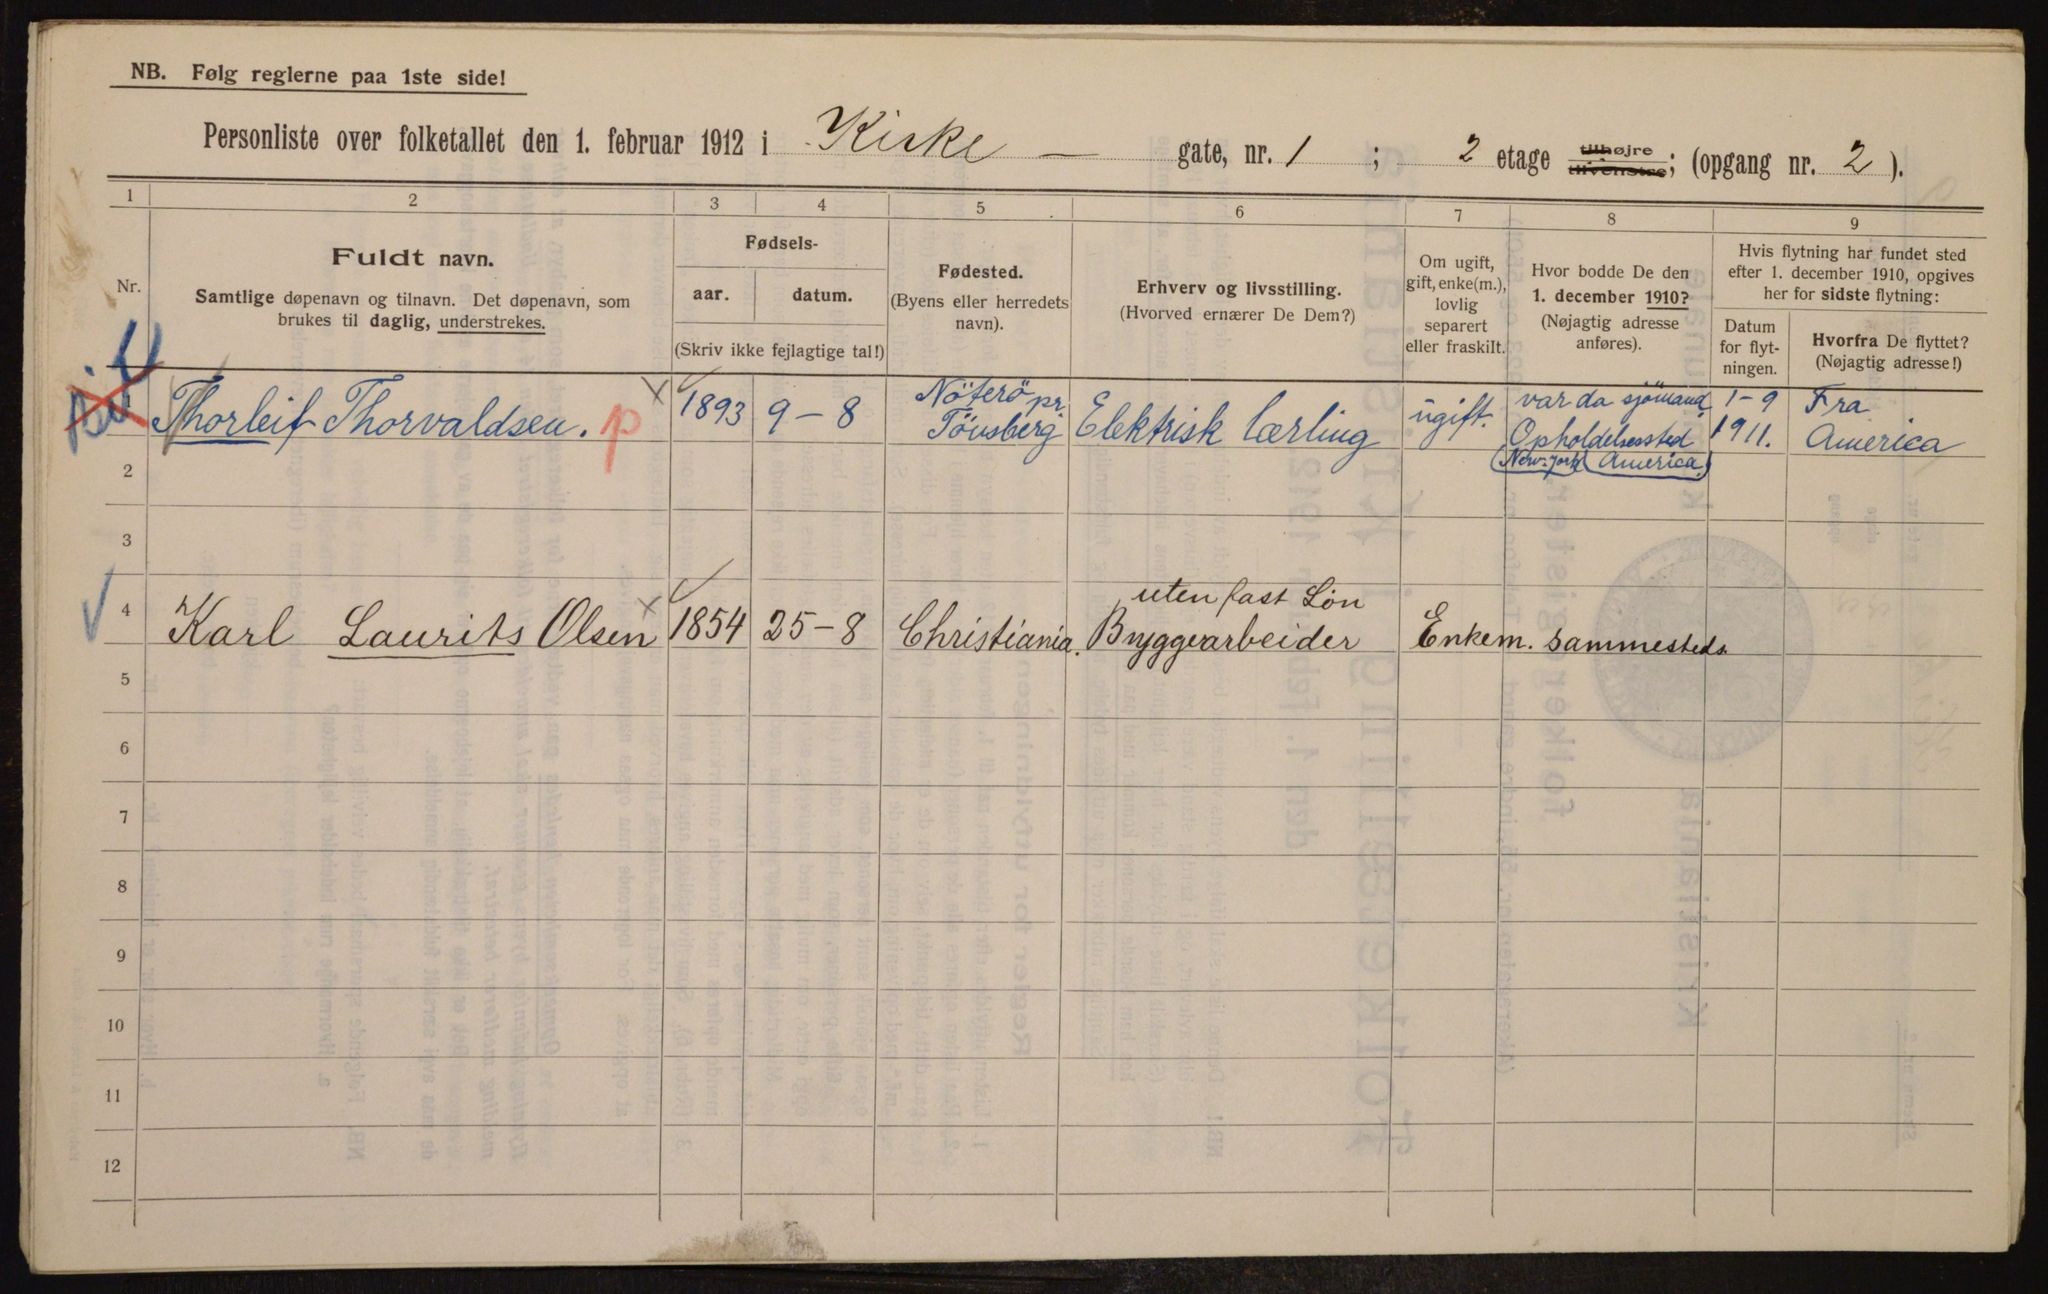 NB. Følg reglerne paa 1ste side!
Personliste over folketallet den 1. februar 1912 i Kirke — gate, nr. 1 ; 2 etage tilhøjre tilvenstre; (opgang nr. 2 ).
1 2 3 4 5 6 7 8 9
Nr.
Fuldt navn.
Samtlige døpenavn og tilnavn. Det døpenavn, som
brukes til daglig, understrekes.
Fødsels-
aar. datum.
(Skriv ikke fejlagtige tal!)
Fødested.
(Byens eller herredets
navn).
Erhverv og livsstilling.
(Hvorved ernærer De Dem?)
Om ugift,
gift, enke(m.),
lovlig
separert
eller fraskilt.
Hvor bodde De den
1. december 1910?
(Nøjagtig adresse
anføres).
Hvis flytning har fundet sted
efter 1. december 1910, opgives
her for sidste flytning:
Datum
for flyt-
ningen.
Hvorfra De flyttet?
(Nøjagtig adresse!)
Thorleif Thorvaldsen. p
1893 9-8
Nöterö pr.
Tönsberg
Elektrisk Lærling
ugift.
var da sjömand
Opholdelsessted
(New-York) (America.)
1-9
1911.
Fra
America
2
3
4 Karl Laurits Olsen
1854 25-8
Christiania.
uten fast Løn
Bryggearbeider
Enkem.
sammesteds.
5
6
7
8
9
10
11
12